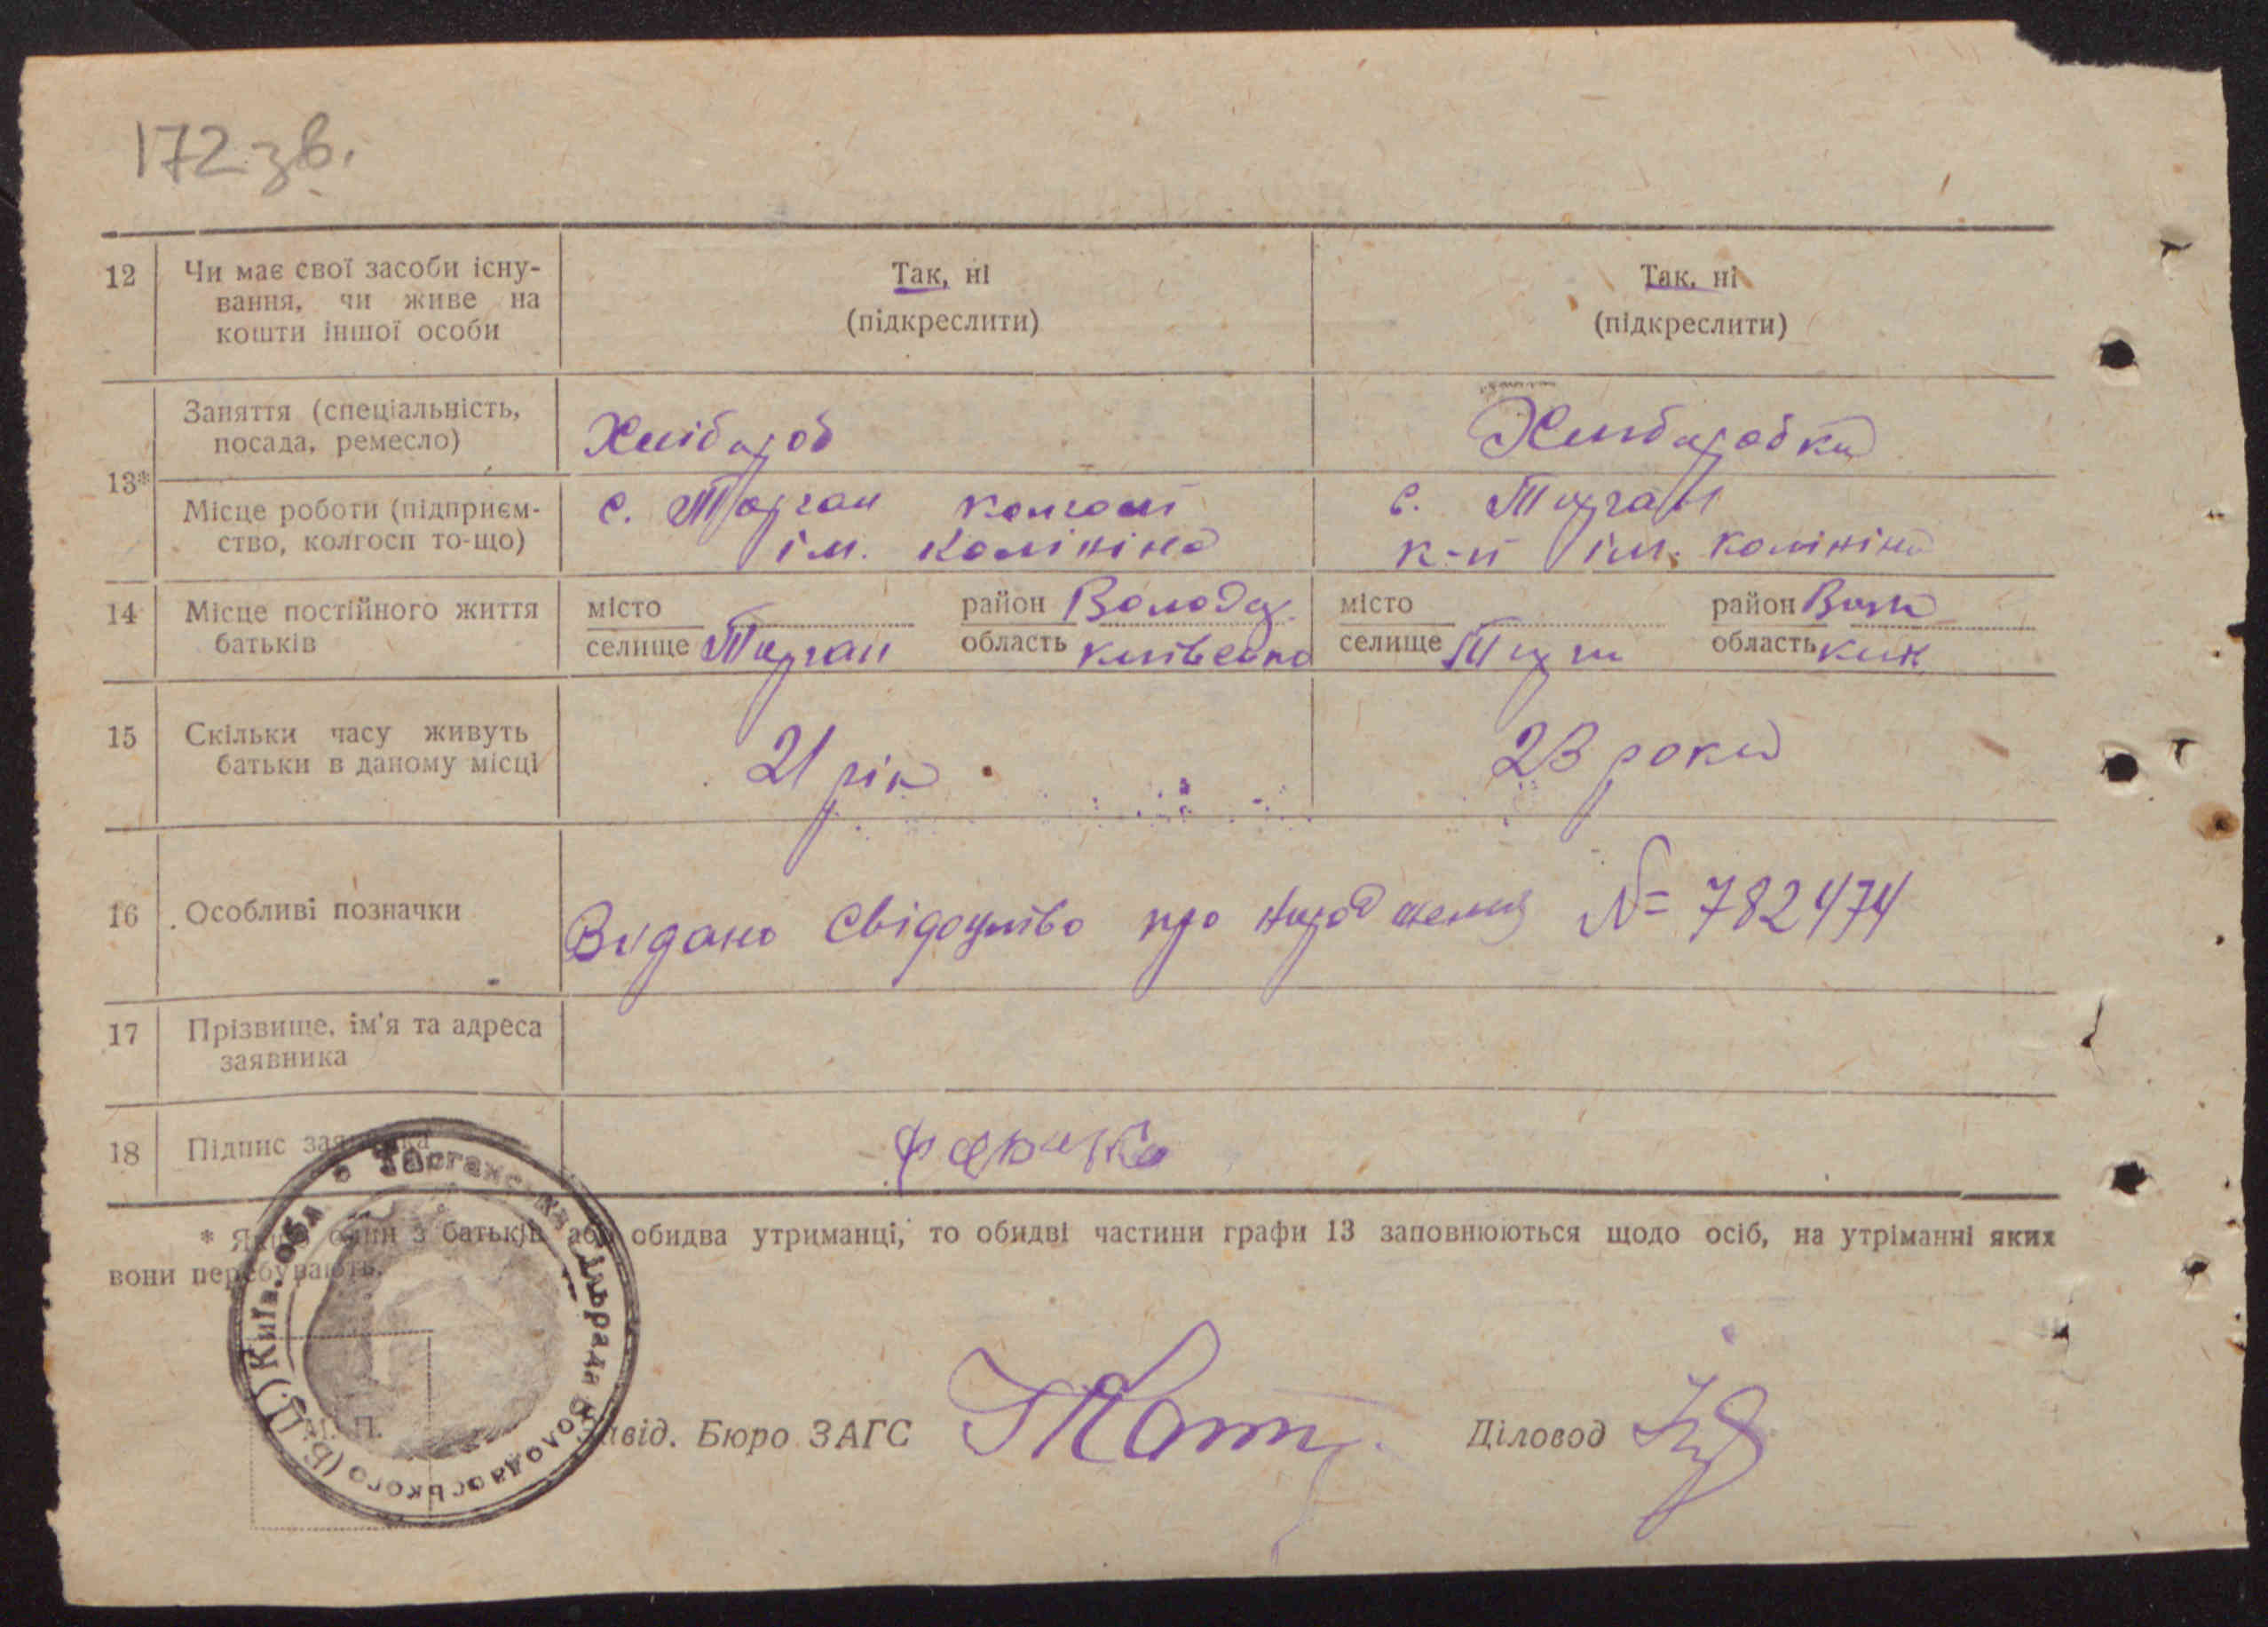 172 зв.
12 Чи має свої засоби існу-
вання, чи живе на
кошти іншої особи
Так, ні
(підкреслити)
Так, ні
(підкреслити)
13*
Заняття (спеціальність,
посада, ремесло)
Хлібороб
Хлібаробка
Місце роботи (підприєм-
ство, колгосп то-що)
с. Тарган колгосп
ім. Калініна
с. Тарган
к-п ім. Калініна
14 Місце постійного життя
батьків
місто
селище Тарган
район Володар
область Київська
місто
селище
район
область Київ
15 Скільки часу живуть
батьки в даному місці
21 рік
23 роки
16 Особливі позначки
Видано свідоцтво про народження № 782474
17 Прізвище, ім'я та адреса
заявника
18 Підпис заявника
* Якщо один з батьків або обидва утриманці, то обидві частини графи 13 заповнюються щодо осіб, на утріманні яких
вони перебувають.
М. П.
Завід. Бюро ЗАГС
Діловод
Тарганська сільрада Володарського (Б.Ц.) Київ. обл.